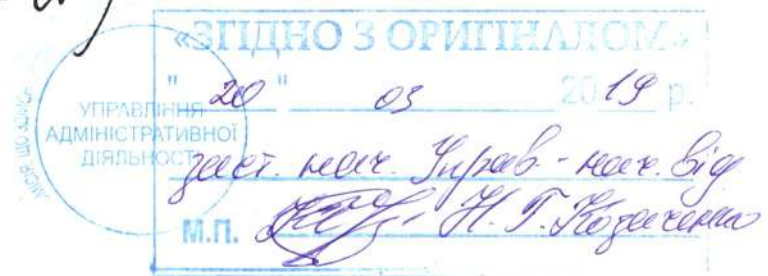 «ЗГІДНО З ОРИГІНАЛОМ»
" 20 " 03 2019 р.
УПРАВЛІННЯ
АДМІНІСТРАТИВНОЇ
ДІЯЛЬНОСТІ
заст. нач. Управ. - нач. від
М.П. Н. Г. Козаченко